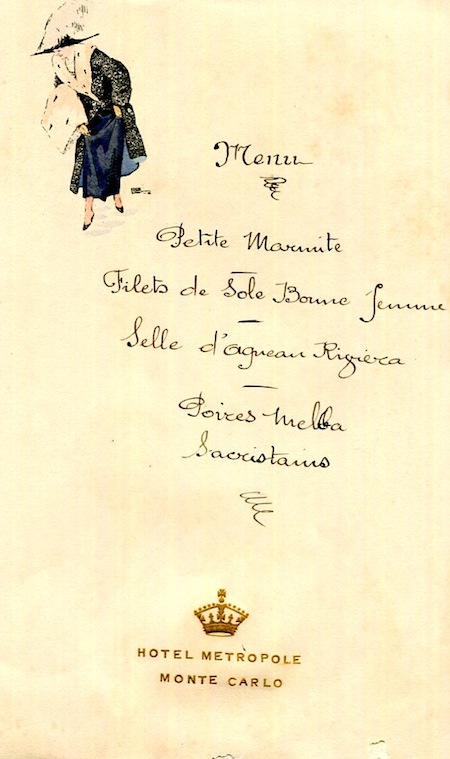 Menu
Petite Marmite
Filets de Sole Bonne femme
Selle d'agneau Rigiera
Poires Melba
Sacristains
HOTEL METROPOLE
MONTE CARLO